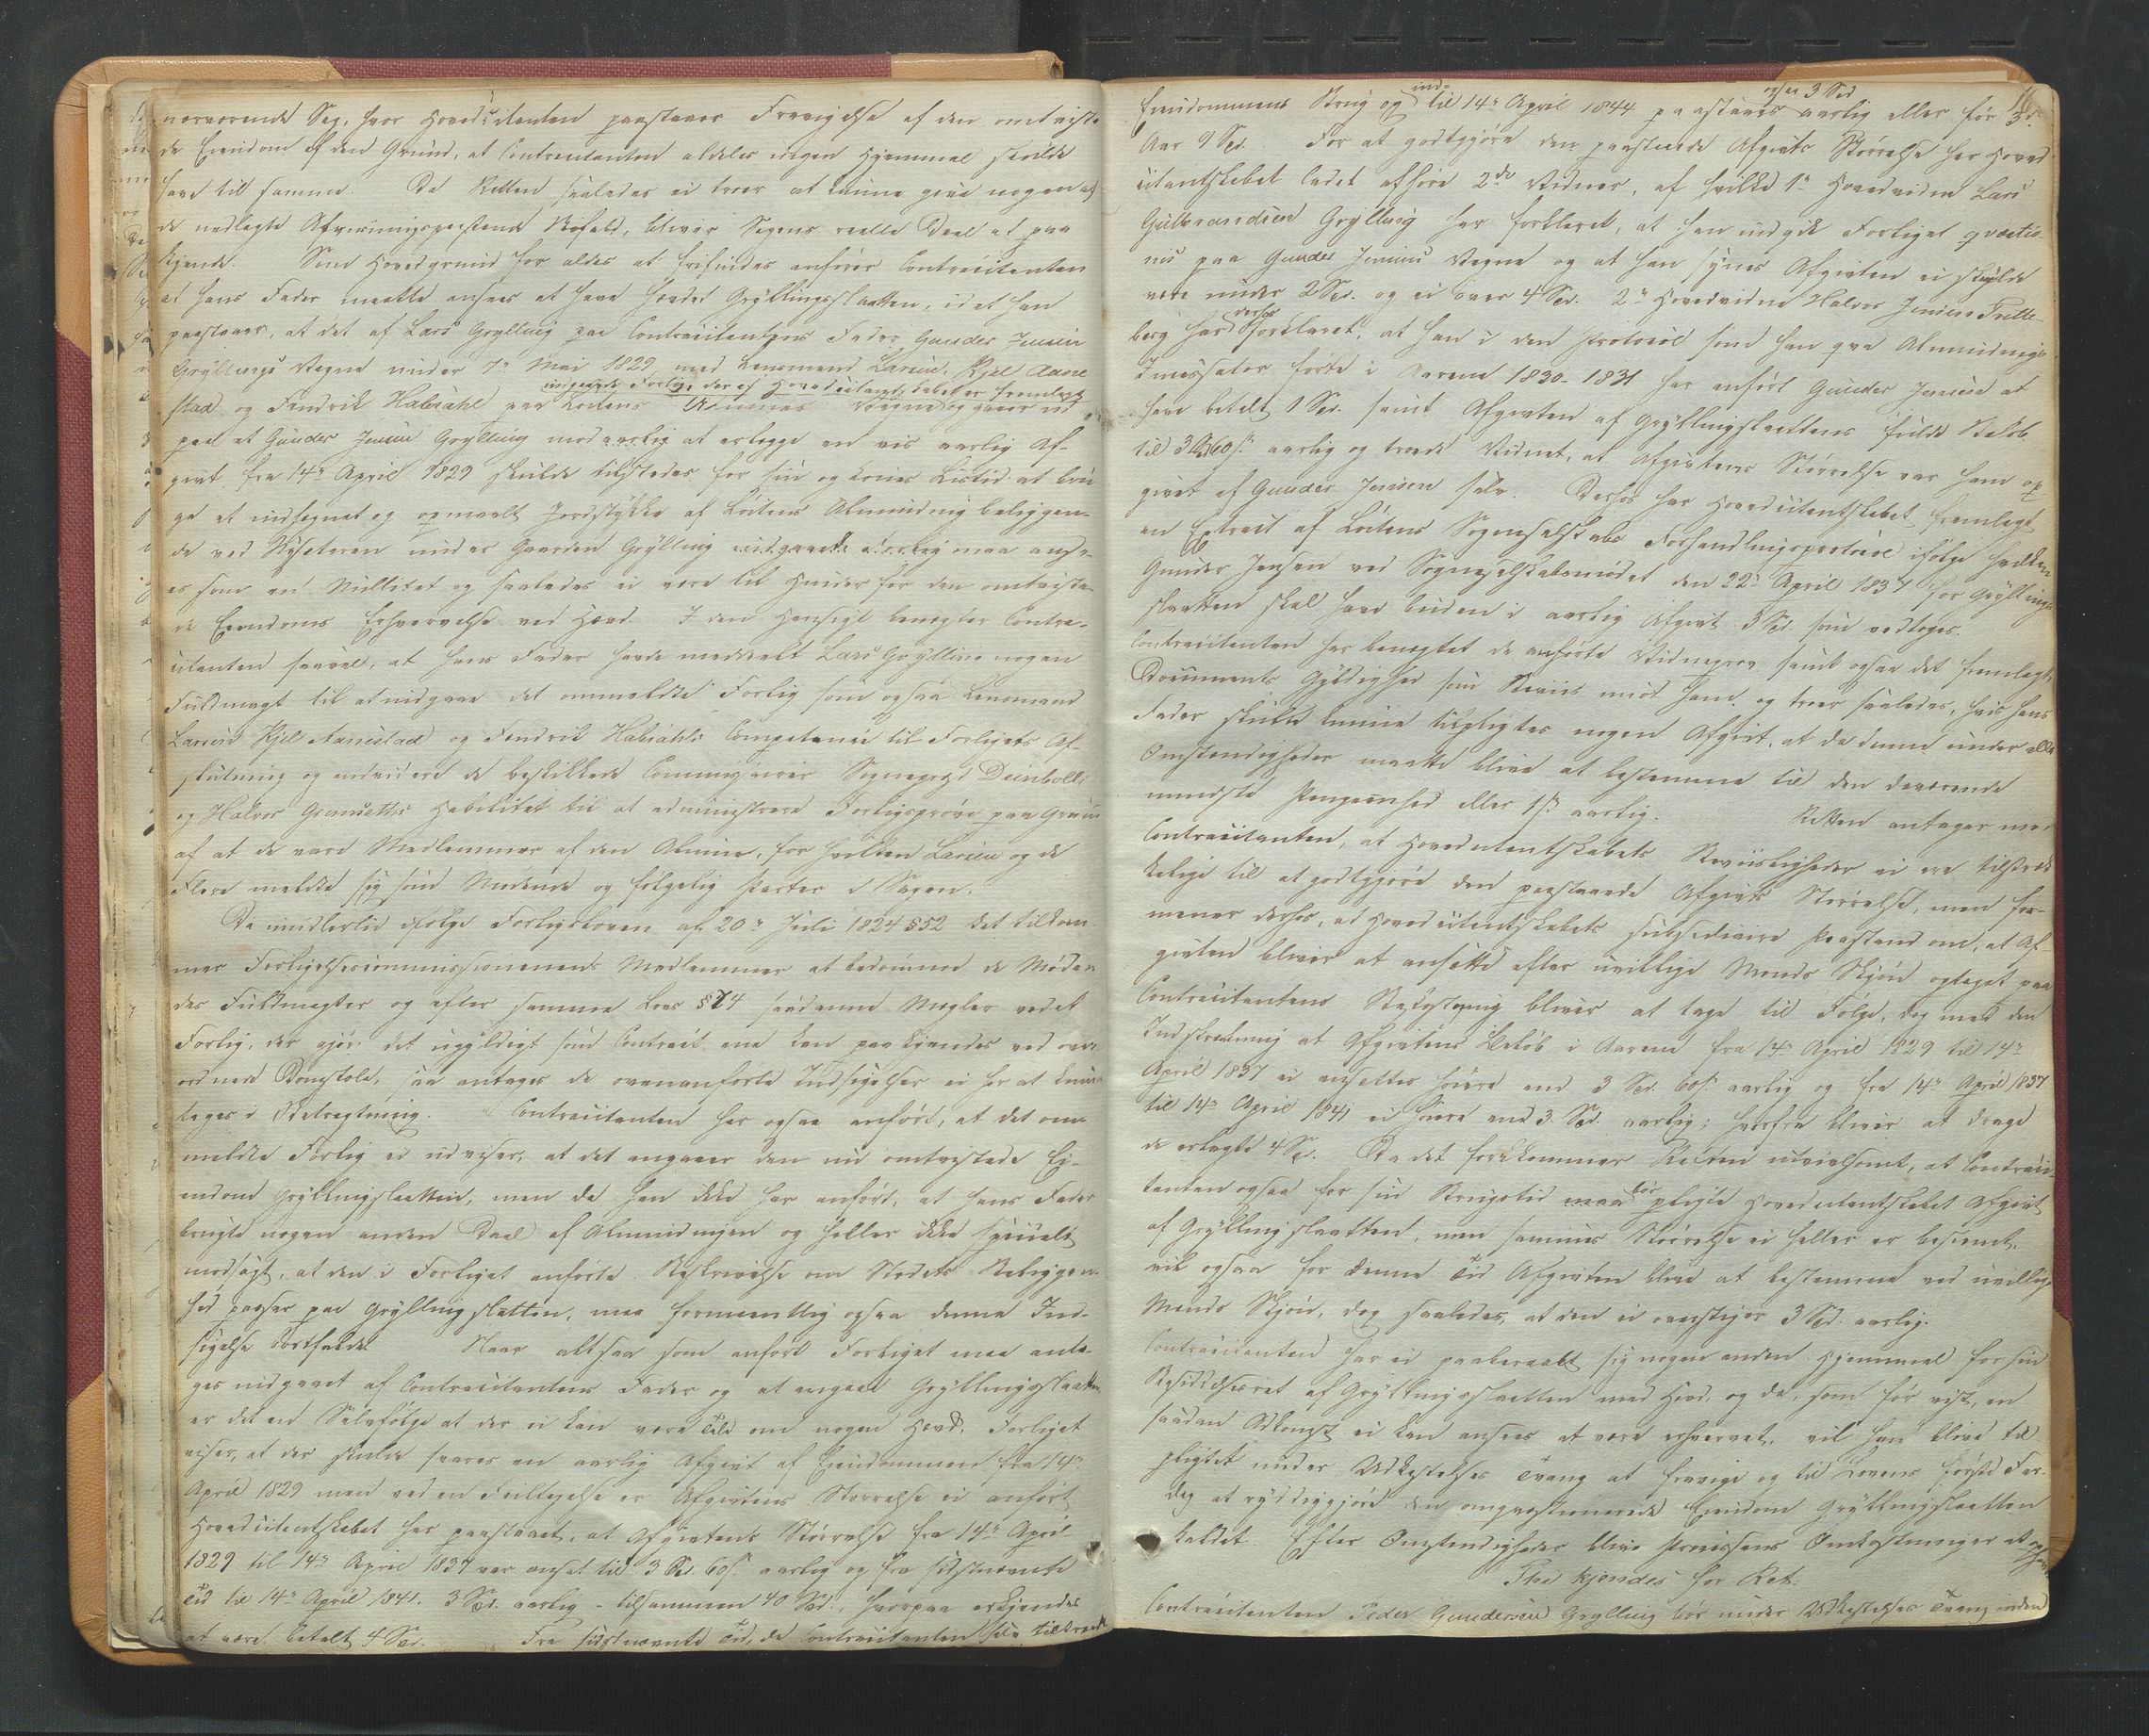 nærværende Sag, hvor Hovedcitanten paastaaer Fravigelse af den omtviste-
de Eiendom af den Grund, at Contracitanten aldeles ingen Hjemmel skulde
have til samme. Da Retten saaledes ei troer at kunne give nogen af
de nedlagte Afviisningspaastande Bifald, bliver Sagens reelle Deel at paa-
kjende. Som Hovedgrund for aldes at frifindes anfører Contracitanten
at hans Fader maatte ansees at have hævdet Gryllingslaatten, idet han
paastaaer, at det af Lars Grylling paa Contracitantens Fader Gunder Jensen
Gryllings Vegne under 7de Mai 1829 med Lensmand Larsen, Kjel Aane
stad og Fendrik Habrahl paa Løitens Almues Vegne
indgaaede Forlig, der af Hovedcitantskabet er fremlagt og gaaer ud
paa at Gunder Jensen Grylling mod aarlig at erlægge en vis aarlig Af-
givt fra 14de April 1829 skulde tilstedes for sin og Kones Livstid at bru-
ge et indhegnet og opmaalt Jordstykke af Løitens Alminding beliggen-
de ved Nysæteren under Gaarden Grylling maa anse-
es som en Nullitet og saaledes ei være til Hinder for den omtviste-
de Eiendoms Erhvervelse ved Hævd. I den Henseende benegter Contra-
citanten saavel, at hans Fader havde meddeelt Lars Grylling nogen
Fuldmagt til at indgaae det ommeldte Forlig som ogsaa Lensmand
Larsens Kjel Aanestad og Fendrik Habrahls Competence til Forligets Af-
slutning og endvidere de beskikkede Commissairer Sogneprest Deinbolls
og Halvor Grønsethes Habilitet til at administrere Forligsprøve paa Grund
af at de vare Medlemmer af den Almue, for hvilken Larsen og de
Flere meldte sig som Mødende og følgelig Parter i Sagen.
Da imidlertid ifølge Forligsloven af 20de Juli 1824 §52 det tilkom-
mer Forligelsescommissionernes Medlemmer at bedømme de Møden-
des Fuldmagter og efter samme Lovs §74 saadanne Mangler ved et
Forlig, der gjør det ugyldigt som Contract ene kan paakjendes ved over-
ordnede Domstole, saa antages de ovenanførte Indsigelser ei her at kunne
tages i Betragtning. Contracitanten har ogsaa anført, at det om-
meldte Forlig ei udviser, at det angaaer den nu omtvistede Ei-
endom Gryllingslaatten, men da han ikke har anført, at hans Fader
brugte nogen anden Deel af Almindingen og heller ikke specielt
modsagt, at den i Forliget anførte Beskrivelse om Stedets Beliggen-
hed passer paa Gryllingslatten, maa formeentlig ogsaa denne Ind-
sigelse bortfalde. Naar altsaa som anført Forliget maa anta-
ges indgaaet af Contracitantens Fader og at angaae Gryllingslaatten,
er det en Selvfølge at der ei kan være Tale om nogen Hævd. Forliget
viser, at der skulde svares en aarlig Afgivt af Eiendommen fra 14de
April 1829 men ved en Feiltagelse er Afgivtens Størrelse ei anført.
Hovedcitantskabet har paastaaet, at Afgivtens Størrelse fra 14de April
1829 til 14de April 1837 var ansat til 3 Spd. 60s. aarlig og fra sidstnævnte
Tid til 14de April 1841. 3 Spd. aarlig - tilsammen 40 Spd., hvorpaa erkjendes
at være betalt 4 Spd. Fra sidstnævnte Tid, da Contracitanten selv tiltraadte
16
Eiendommens Brug og ind- til 14de April 1844 paastaaes ogsaa 3 Spd aarlig eller for 3de
Aar 9 Spd. For at godtgjøre den paastaaede Afgivts Størrelse har Hoved-
citantskabet ladet afhøre 2de Vidner, af hvilke 1ste Hovedvidne Lars
Gulbrandsen Grylling har forklaret, at han indgik Forliget qvæstio-
nis paa Gunder Jensens Vegne og at han synes Afgivten ei skulde
være under 2 Spd. og ei over 4 Spd. 2det Hovedvidne Halvor Jensen Frette-
berg har derhos forklaret, at han i den Protocol som han qva Almindings-
Incassator førte i Aarene 1830-1831 har anført Gunder Jensen at
have betalt 1 Spd. samt Afgivten af Gryllingslaattens fulde Beløb
til 3 Spd 60s. aarlig og troede Vidnet, at Afgivtens Størrelse var ham op-
givet af Gunder Jensen selv. Derhos har Hovedcitantskabet fremlagt
en Extract af Løitens Sogneselskabs Forhandlingsprotocol ifølge hvilken
Gunder Jensen ved Sogneselskabsmødet den 22de April 1837 for Gryllings-
slaatten skal have buden i aarlig Afgivt 3 Spd. som vedtoges.
Contracitanten har benegtet de anførte Vidneprov samt ogsaa det fremlagte
Documents Gyldighed som Beviis mod ham, og troer saaledes, hvis hans
Fader skulde kunne tilpligtes nogen Afgivt, at da denne under alle
Omstændigheder maatte blive at bestemme til den daværende
mindste Pengeenhed eller 1s. aarlig. Retten antager med
Contracitanten, at Hovedcitantskabets Beviisligheder ei ere tilstræk-
kelige til at godtgjøre den paastaaede Afgivts Størrelse, men for-
mener derhos, at Hovedcitantskabets subsidiaire Paastand om, at Af-
givten bliver at ansætte efter uvillige Mænds Skjøn optaget paa
Contracitantens Bekostning bliver at tage til Følge, dog med den
Indskrænkning at Afgivtens Beløb i Aarene fra 14de April 1829 til 14de
April 1837 ei ansættes høiere end 3 Spd. 60s. aarlig og fra 14de April 1837
til 14de April 1841 ei høiere end 3 Spd. aarlig; hvorfra bliver at drage
de erlagte 4 Spd. Da det forekommer Retten utvivlsomt, at Contraci-
tanten ogsaa for sin Brugstid bør pligte Hovedcitantskabet Afgivt
af Gryllingslaatten, men sammes Størrelse ei heller er bestemt,
vil ogsaa for denne Tid Afgivten blive at bestemme ved uvillige
Mænds Skjøn, dog saaledes, at den ei overstiger 3 Spd. aarlig.
Contracitanten har ei paaberaabt sig nogen anden Hjemmel for sin
Besiddelsesret af Gryllingsslaatten end Hævd, og da, som før viist, en
saadan Adkomst ei kan ansees at være erhvervet, vil han blive til-
pligtet under Udkastelses Tvang at fravige og til Lovens første Far-
dag at ryddiggjøre den omqvæstionerede Eiendom Gryllingslaatten
kaldet. Efter Omstændigheder blive Processens Omkostninger at ophæve
Thi kjendes for Ret:
Contracitanten Peder Gundersen Grylling bør under Udkastelses Tvang inden